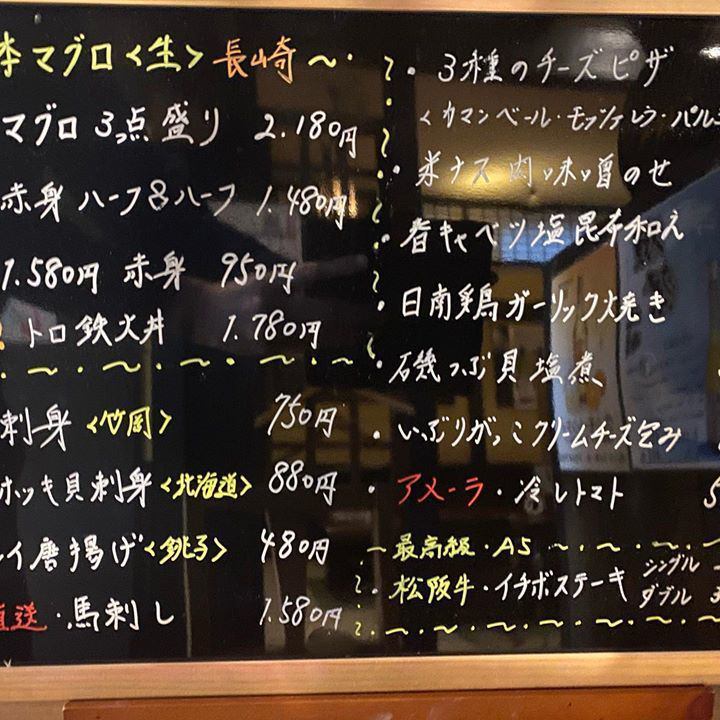 本マグロ〈生〉長崎
マグロ3っ点盛り 2.180円
赤身 ハーフ&ハーフ 1.480円
1.580円 赤身 950円
トロ鉄火丼 1.780円
刺身〈竹岡〉 750円
ホッキ貝刺身〈北海道〉 880円
イ唐揚げ〈銚子〉 480円
直送・馬刺し 1.580円
・3種のチーズピザ
〈カマンベール・モッツァレラ・パル
・米ナス肉味噌のせ
・春キャベツ塩昆布和え
日南鶏ガーリック焼き
・磯つぶ貝塩煮
・いぶりがっこクリームチーズ包み
・アメーラ・冷しトマト 5
最高級・A5
・松阪牛・イチボステーキ シングル
ダブル